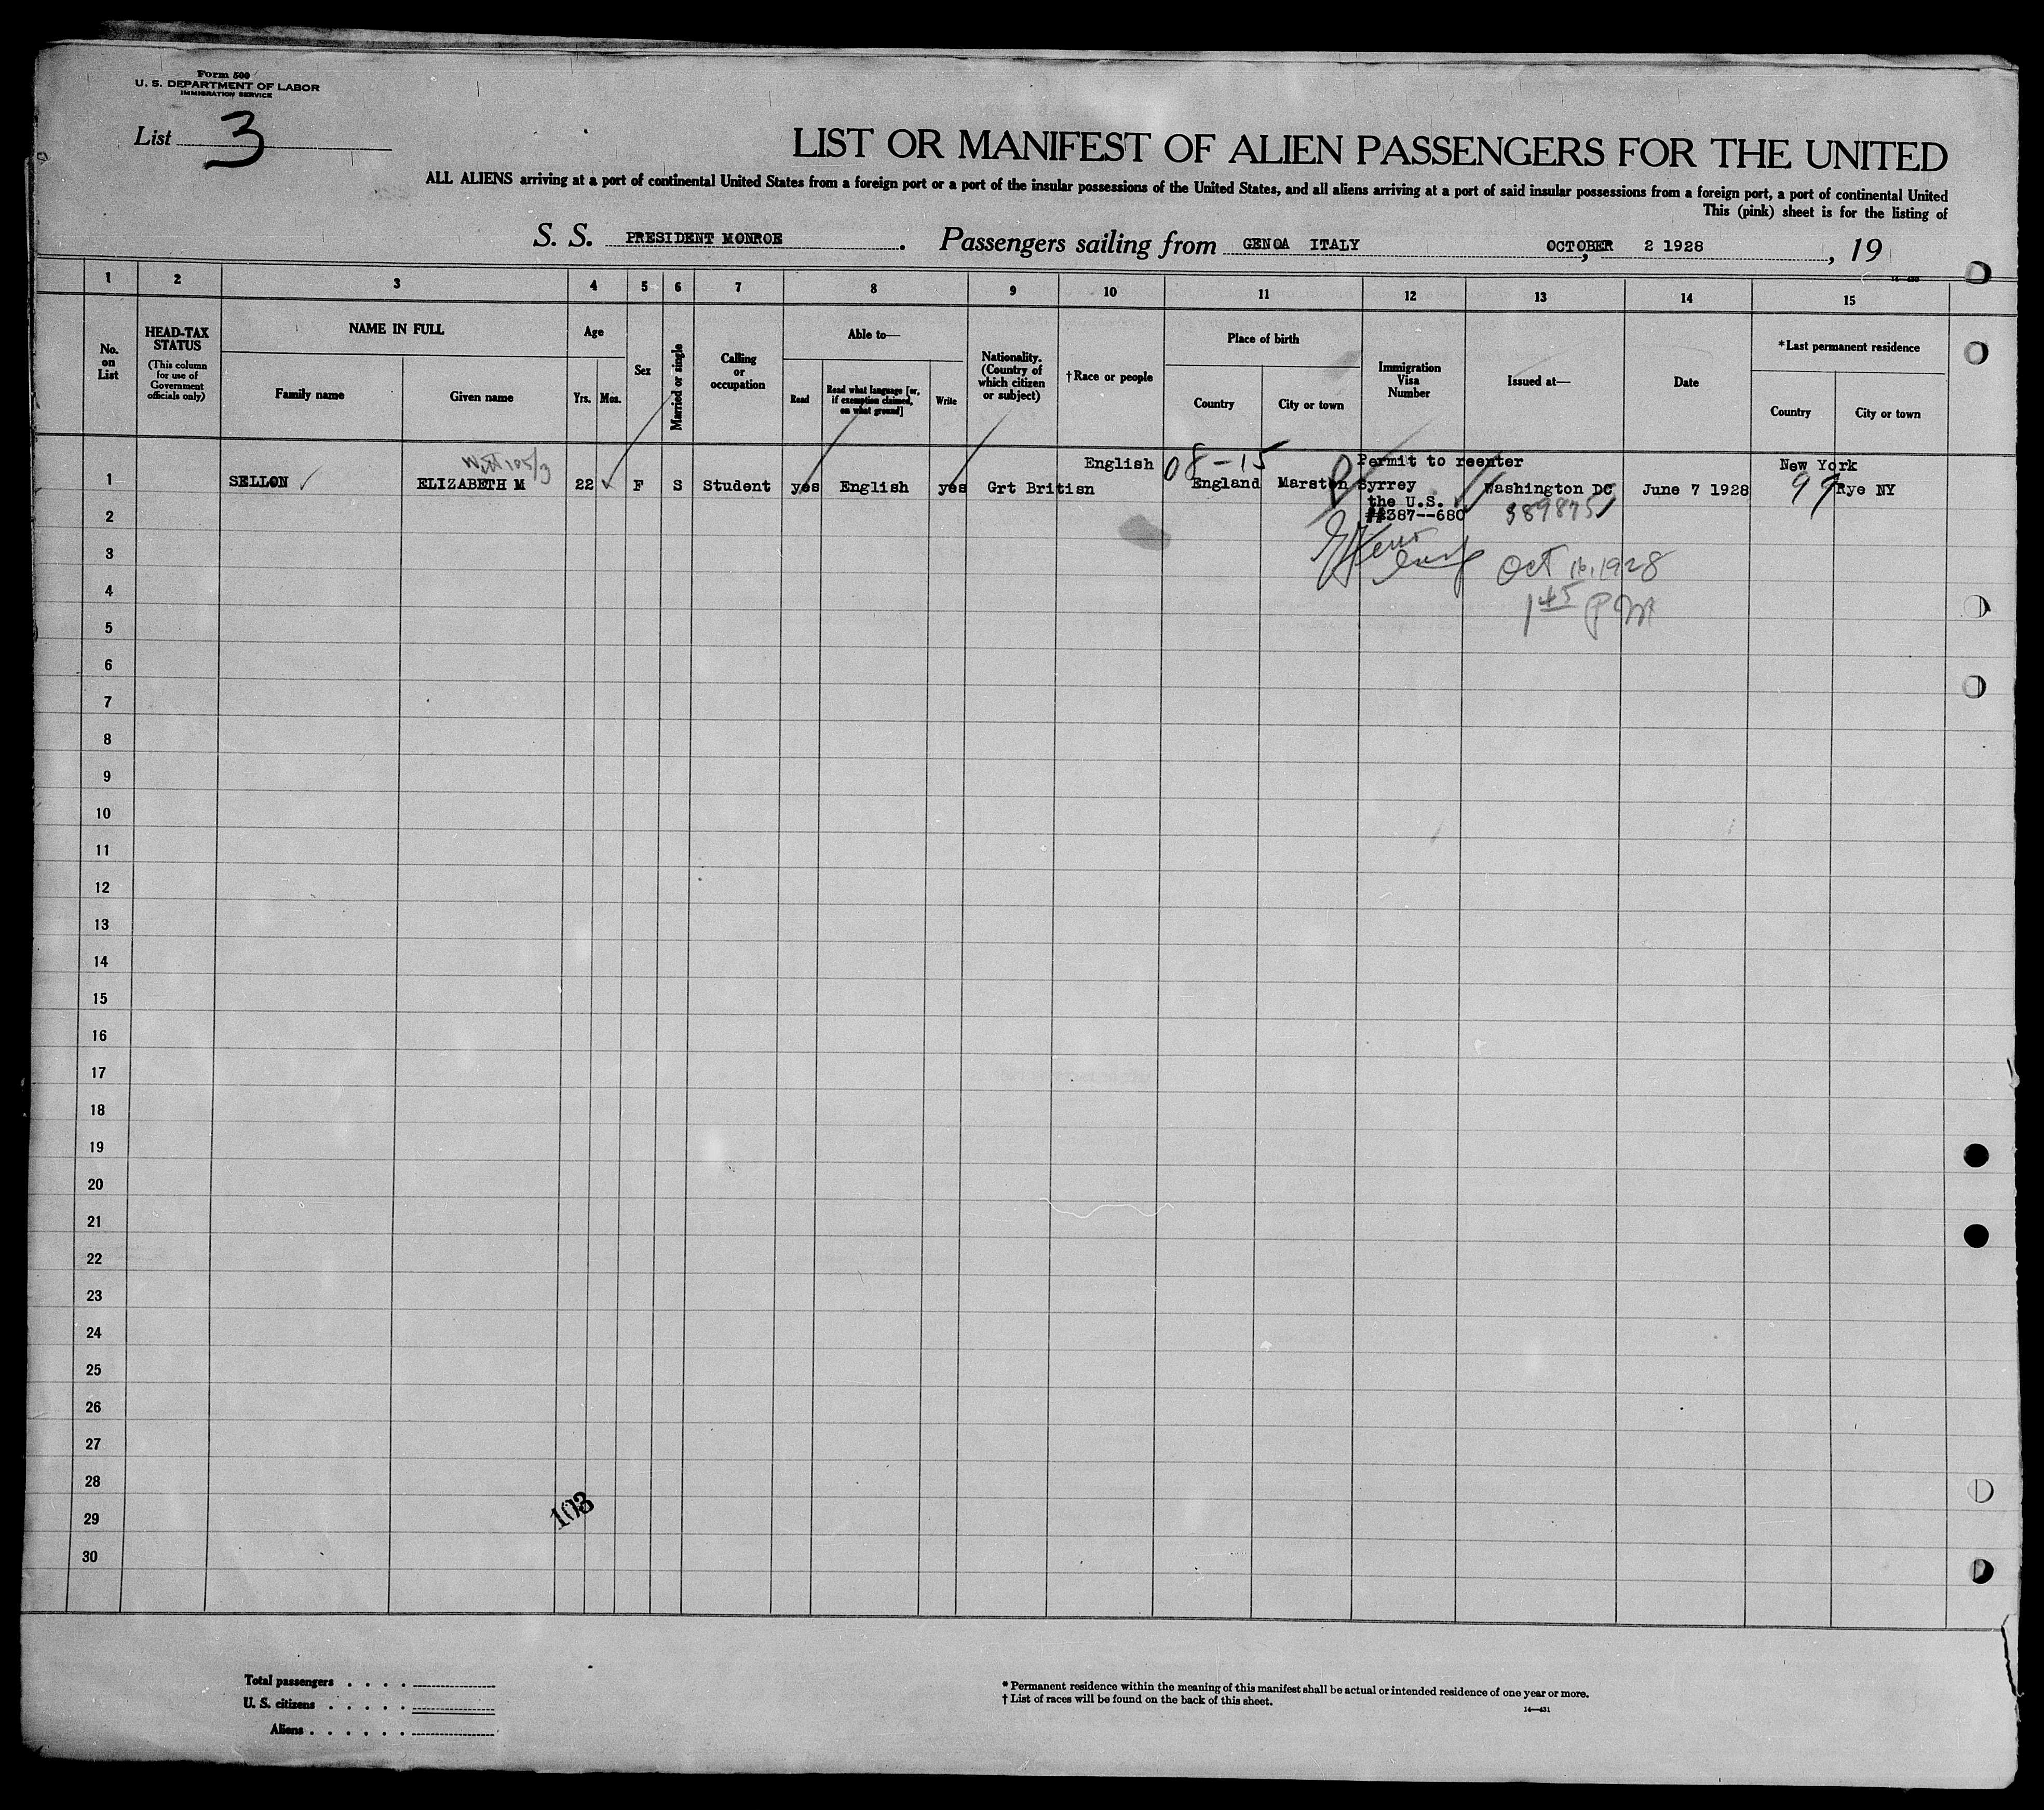 Form 500
U. S. DEPARTMENT OF LABOR
IMMIGRATION SERVICE
List 3
LIST OR MANIFEST OF ALIEN PASSENGERS FOR THE UNITED
ALL ALIENS arriving at a port of continental United States from a foreign port or a port of the insular possessions of the United States, and all aliens arriving at a port of said insular possessions from a foreign port, a port of continental United
This (pink) sheet is for the listing of
S. S. PRESIDENT MONROE . Passengers sailing from GENOA ITALY , OCTOBER 2 1928 , 19
1 2 3 4 5 6 7 8 9 10 11 12 13 14 15
No. on List
HEAD-TAX STATUS
(This column for use of Government officials only)
NAME IN FULL
Family name
Given name
Age
Yrs.
Mos.
Sex
Married or single
Calling or occupation
Able to—
Read
Read what language [or, if exemption claimed, on what ground]
Write
Nationality. (Country of which citizen or subject)
†Race or people
Place of birth
Country
City or town
Immigration Visa Number
Issued at—
Date
*Last permanent residence
Country
City or town
08-15
English
Permit to reenter
New York
1 SELLON ELIZABETH M 22 F S Student yes English yes Grt Britisn England Marston Syrrey Washington DC June 7 1928 99 Rye NY
the U.S.
2 #387--680 389875
3 Oct 16, 1928
4 1 45 PM
5
6
7
8
9
10
11
12
13
14
15
16
17
18
19
20
21
22
23
24
25
26
27
28
29 103
30
Total passengers
U. S. citizens
Aliens
* Permanent residence within the meaning of this manifest shall be actual or intended residence of one year or more.
† List of races will be found on the back of this sheet.
14—431